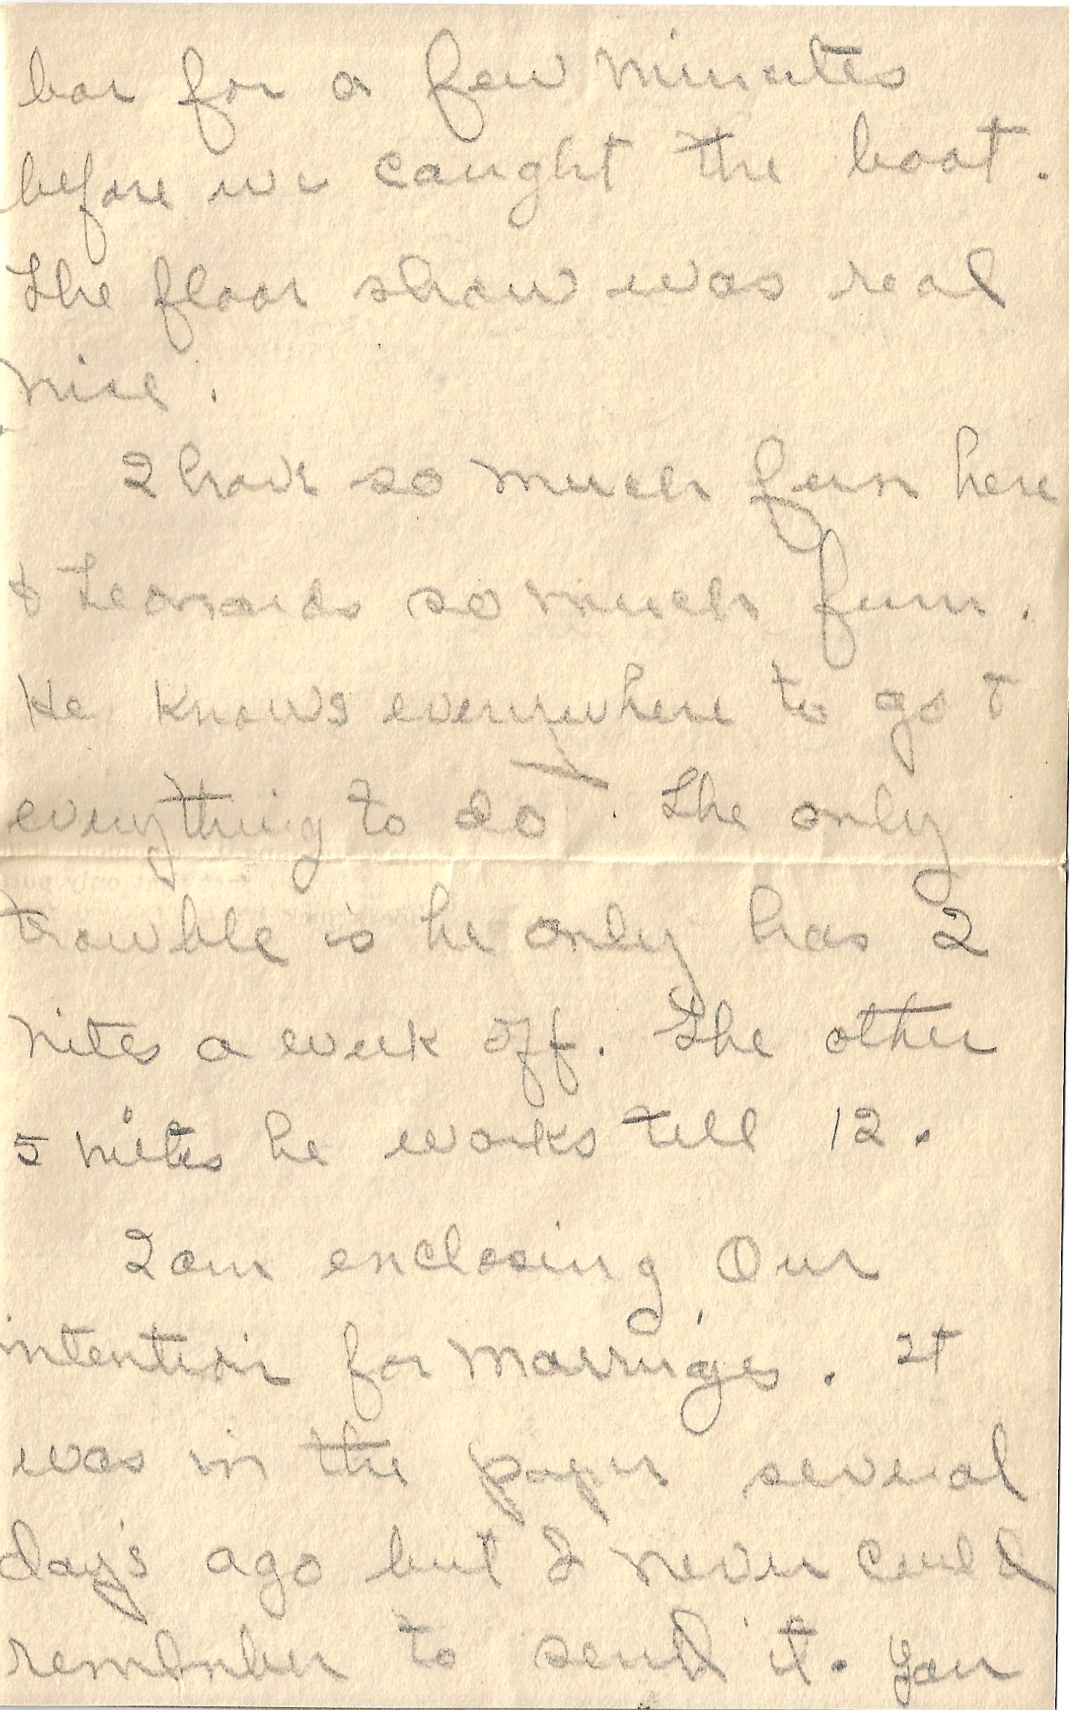 bar for a few minutes
before we caught the boat.
The floor show was real
nise.
I have so much fun here
& Leonards so much fun.
He knows everywhere to go &
everything to do. The only
trouble is he only has 2
nites a week off. The other
5 nites he works till 12.
I am enclosing Our
intention for Marriges. It
was in the paper several
day's ago but I never could
remember to send it. You